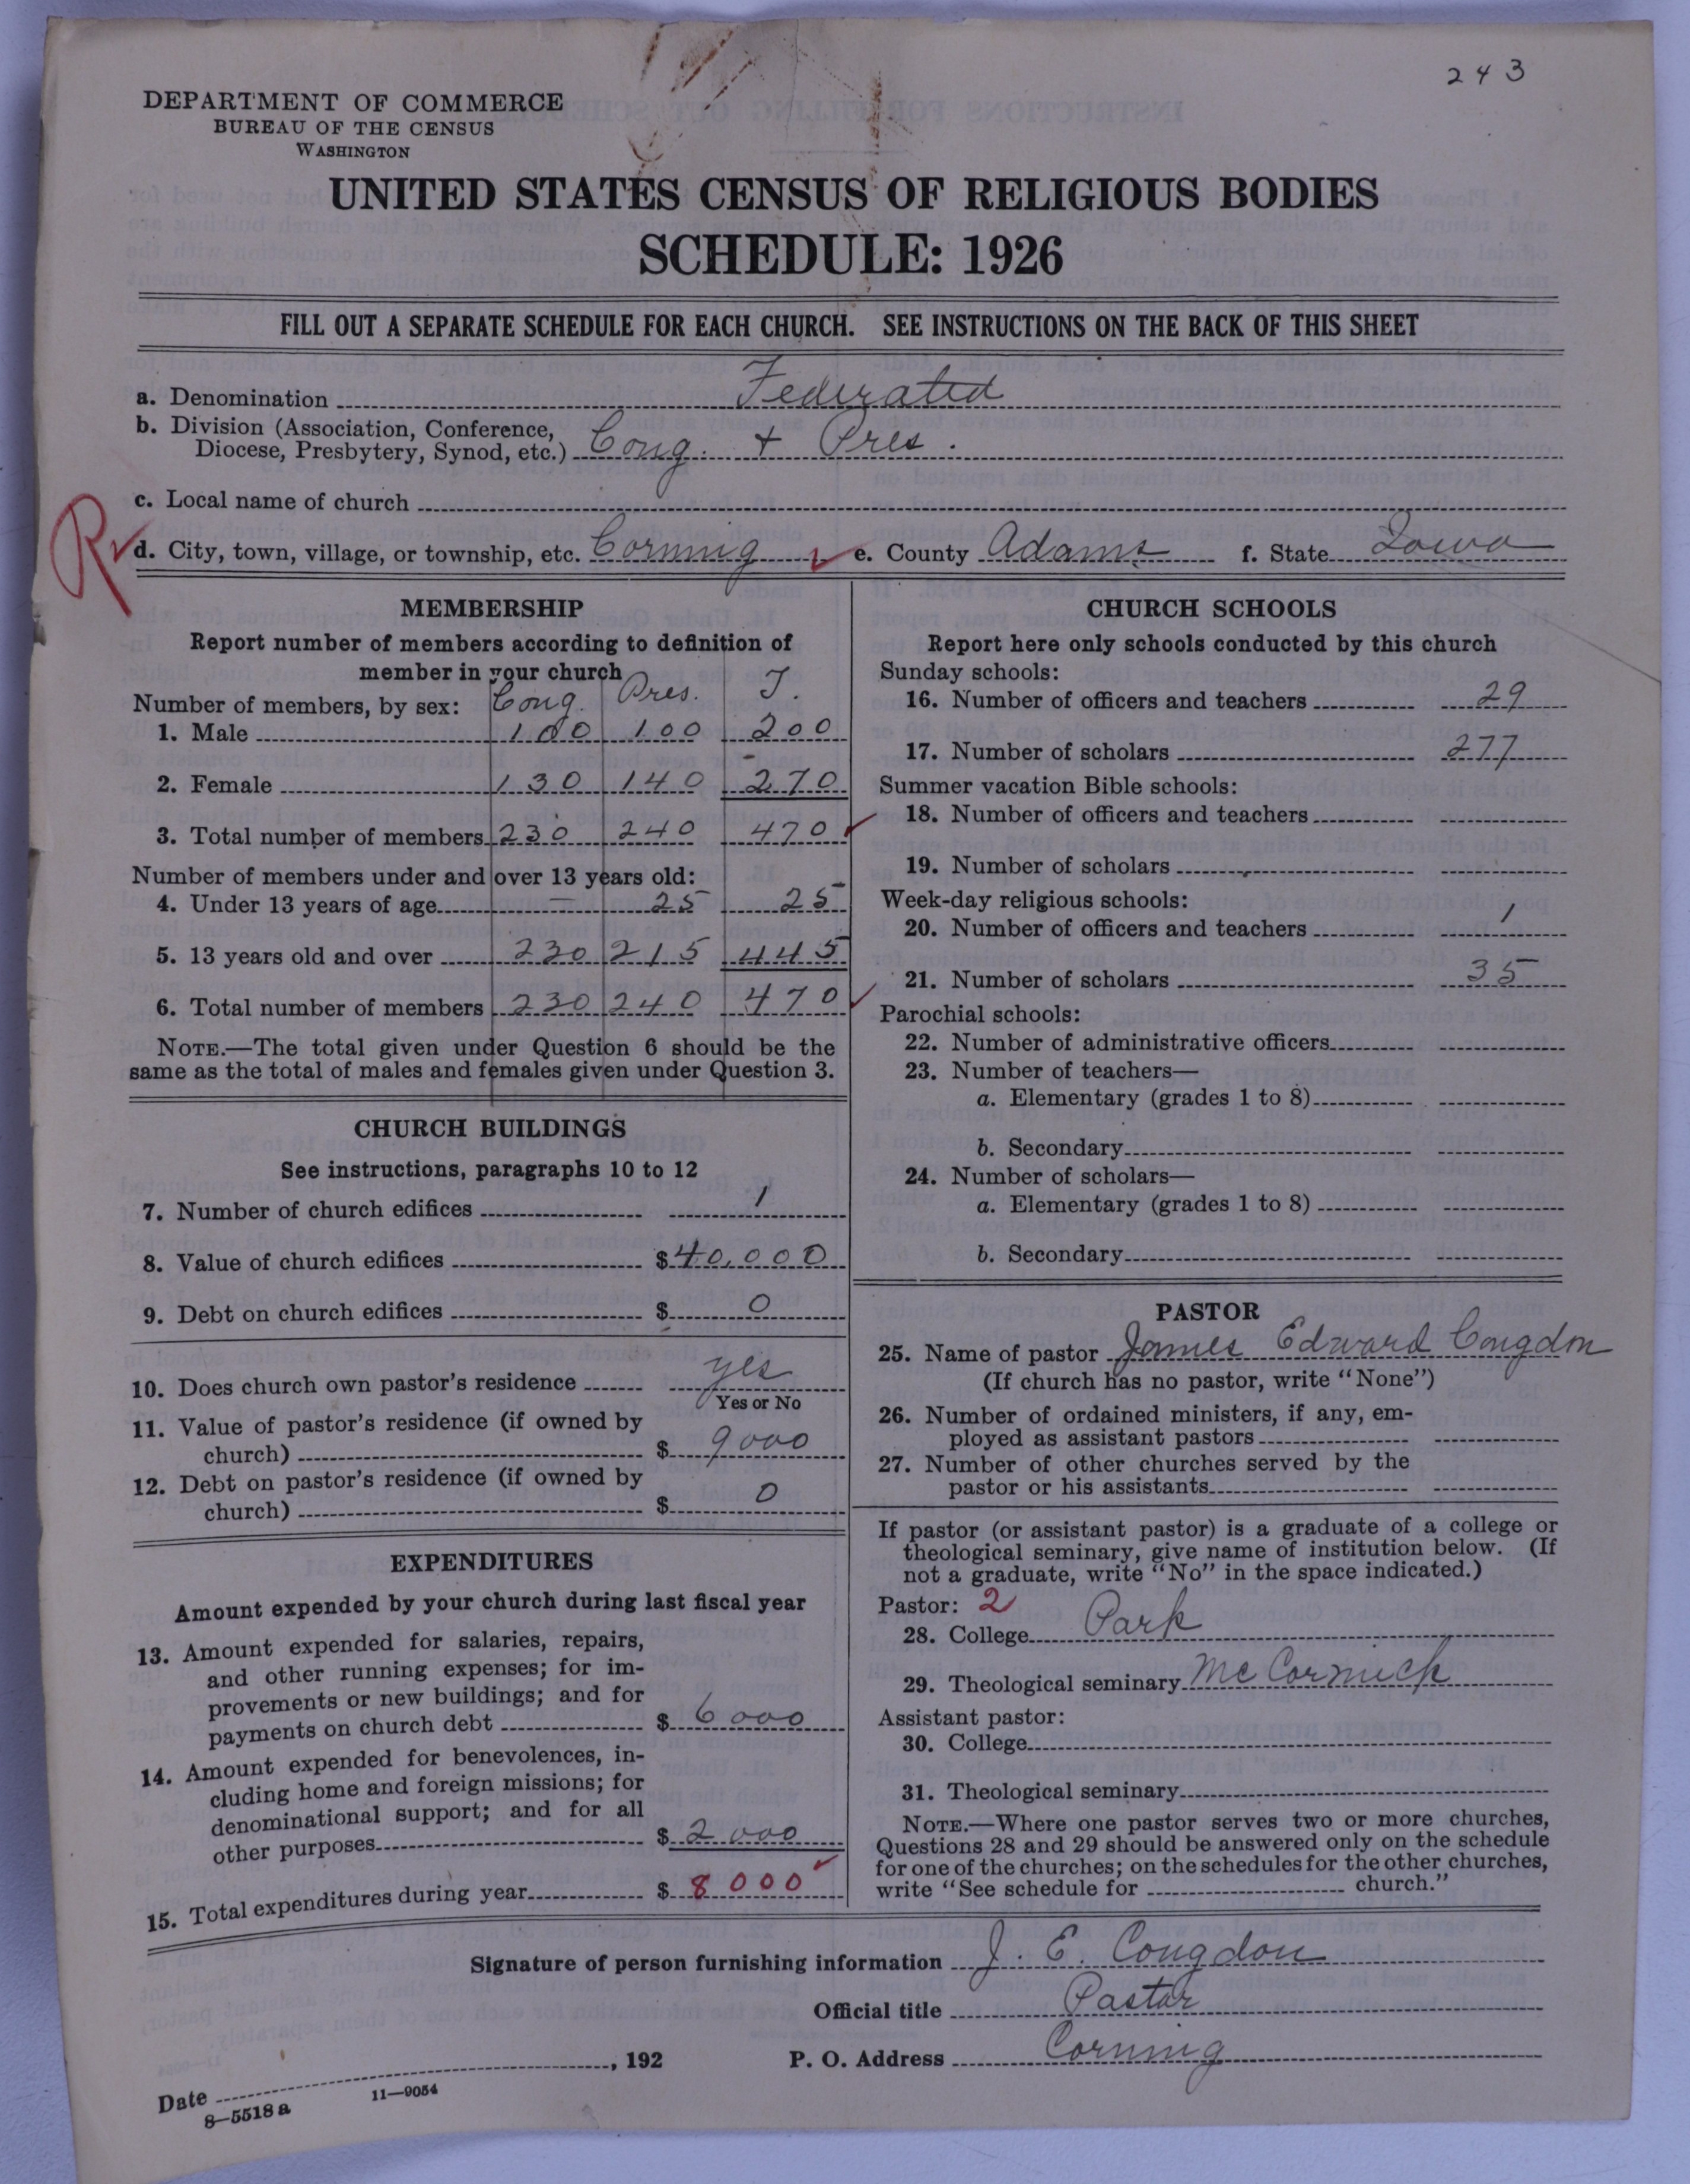 243
DEPARTMENT OF COMMERCE
BUREAU OF THE CENSUS
WASHINGTON
UNITED STATES CENSUS OF RELIGIOUS BODIES
SCHEDULE: 1926
FILL OUT A SEPARATE SCHEDULE FOR EACH CHURCH. SEE INSTRUCTIONS ON THE BACK OF THIS SHEET
a. Denomination Federated
b. Division (Association, Conference,
Diocese, Presbytery, Synod, etc.) Cong. + Pres.
c. Local name of church
R d. City, town, village, or township, etc. Corning e. County Adams f. State Iowa
MEMBERSHIP
Report number of members according to definition of
member in your church
Number of members, by sex: Cong. Pres. T.
1. Male 100 100 200
2. Female 130 140 270
3. Total number of members 230 240 470
Number of members under and over 13 years old:
4. Under 13 years of age — 25 25
5. 13 years old and over 230 215 445
6. Total number of members 230 240 470
NOTE.—The total given under Question 6 should be the
same as the total of males and females given under Question 3.
CHURCH BUILDINGS
See instructions, paragraphs 10 to 12
7. Number of church edifices 1
8. Value of church edifices $40,000
9. Debt on church edifices $ 0
10. Does church own pastor's residence yes
Yes or No
11. Value of pastor's residence (if owned by
church) $ 9000
12. Debt on pastor's residence (if owned by
church) $ 0
EXPENDITURES
Amount expended by your church during last fiscal year
13. Amount expended for salaries, repairs,
and other running expenses; for im-
provements or new buildings; and for
payments on church debt $ 6000
14. Amount expended for benevolences, in-
cluding home and foreign missions; for
denominational support; and for all
other purposes $ 2000
15. Total expenditures during year $ 8000
CHURCH SCHOOLS
Report here only schools conducted by this church
Sunday schools:
16. Number of officers and teachers 29
17. Number of scholars 277
Summer vacation Bible schools:
18. Number of officers and teachers
19. Number of scholars
Week-day religious schools:
20. Number of officers and teachers 1
21. Number of scholars 35
Parochial schools:
22. Number of administrative officers
23. Number of teachers—
a. Elementary (grades 1 to 8)
b. Secondary
24. Number of scholars—
a. Elementary (grades 1 to 8)
b. Secondary
PASTOR
25. Name of pastor James Edward Congdon
(If church has no pastor, write "None")
26. Number of ordained ministers, if any, em-
ployed as assistant pastors
27. Number of other churches served by the
pastor or his assistants
If pastor (or assistant pastor) is a graduate of a college or
theological seminary, give name of institution below. (If
not a graduate, write "No" in the space indicated.)
Pastor: 2
28. College Park
29. Theological seminary McCormick
Assistant pastor:
30. College
31. Theological seminary
NOTE.—Where one pastor serves two or more churches,
Questions 28 and 29 should be answered only on the schedule
for one of the churches; on the schedules for the other churches,
write "See schedule for church."
Signature of person furnishing information J. E. Congdon
Official title Pastor
Date , 192 P. O. Address Corning
8—5518 a 11—9054